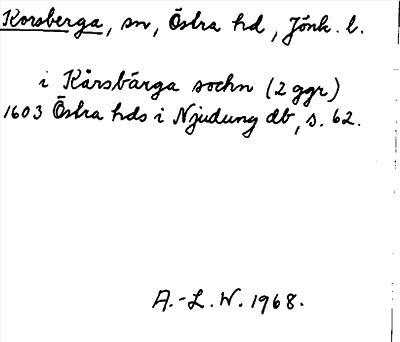 Korsberga, sn, Östra hd, Jönk. l.
i Kårsbärga sochn (2 ggr)
1603 Östra hds i Njudung db, s. 62.
A.-L. W. 1968.